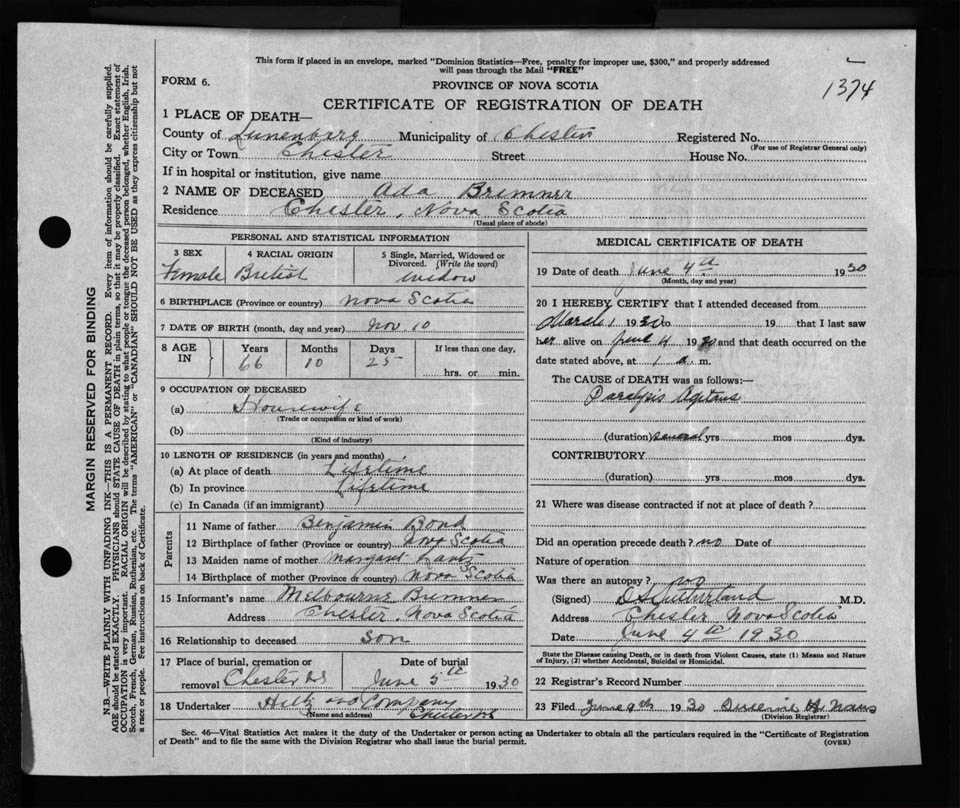 This form if placed in an envelope, marked "Dominion Statistics—Free, penalty for improper use, $300," and properly addressed
will pass through the Mail "FREE"
1374
FORM 6.
PROVINCE OF NOVA SCOTIA
CERTIFICATE OF REGISTRATION OF DEATH
1 PLACE OF DEATH—
County of Lunenburg Municipality of Chester Registered No.
(For use of Registrar General only)
City or Town Chester Street House No.
If in hospital or institution, give name
2 NAME OF DECEASED Ada Bremner
Residence Chester, Nova Scotia
(Usual place of abode)
PERSONAL AND STATISTICAL INFORMATION
3 SEX 4 RACIAL ORIGIN 5 Single, Married, Widowed or
Divorced. (Write the word)
Female British Widow
6 BIRTHPLACE (Province or country) Nova Scotia
7 DATE OF BIRTH (month, day and year) Nov 10
8 AGE IN Years Months Days If less than one day,
66 10 25 hrs. or min.
9 OCCUPATION OF DECEASED
(a) Housewife
(Trade or occupation or kind of work)
(b)
(Kind of industry)
10 LENGTH OF RESIDENCE (in years and months)
(a) At place of death Lifetime
(b) In province Lifetime
(c) In Canada (if an immigrant)
Parents
11 Name of father Benjamin Bond
12 Birthplace of father (Province or country) Nova Scotia
13 Maiden name of mother Margaret
14 Birthplace of mother (Province or country) Nova Scotia
15 Informant's name Melbourne Bremner
Address Chester, Nova Scotia
16 Relationship to deceased son
17 Place of burial, cremation or Date of burial
removal Chester NS June 5th 1930
18 Undertaker and Company
(Name and address) Chester NS
MEDICAL CERTIFICATE OF DEATH
19 Date of death June 4th 1930
(Month, day and year)
20 I HEREBY CERTIFY that I attended deceased from
March 1 1930 to 19 that I last saw
her alive on June 4 1930 and that death occurred on the
date stated above, at 1 a. m.
The CAUSE OF DEATH was as follows:—
Paralysis Agitans
(duration) several yrs mos dys.
CONTRIBUTORY
(duration) yrs mos dys.
21 Where was disease contracted if not at place of death?
Did an operation precede death? no Date of
Nature of operation
Was there an autopsy? no
(Signed) Sutherland M.D.
Address Chester Nova Scotia
Date June 4th 1930
State the Disease causing Death, or in death from Violent Causes, state (1) Means and Nature
of Injury, (2) whether Accidental, Suicidal or Homicidal.
22 Registrar's Record Number
23 Filed June 9th 1930
(Division Registrar)
Sec. 46—Vital Statistics Act makes it the duty of the Undertaker or person acting as Undertaker to obtain all the particulars required in the "Certificate of Registration
of Death" and to file the same with the Division Registrar who shall issue the burial permit.
(OVER)
MARGIN RESERVED FOR BINDING
N.B.—WRITE PLAINLY WITH UNFADING INK—THIS IS A PERMANENT RECORD. Every item of information should be carefully supplied.
AGE should be stated EXACTLY. PHYSICIANS should STATE CAUSE OF DEATH in plain terms, so that it may be properly classified. Exact statement of
OCCUPATION is very important. RACIAL ORIGIN will be described by stating to what people or tongue the deceased person belonged, whether English, Irish,
Scotch, French, German, Russian, Ruthenian, etc. The terms "AMERICAN" or "CANADIAN" SHOULD NOT BE USED as they express citizenship but not
a race or people. See instructions on back of Certificate.